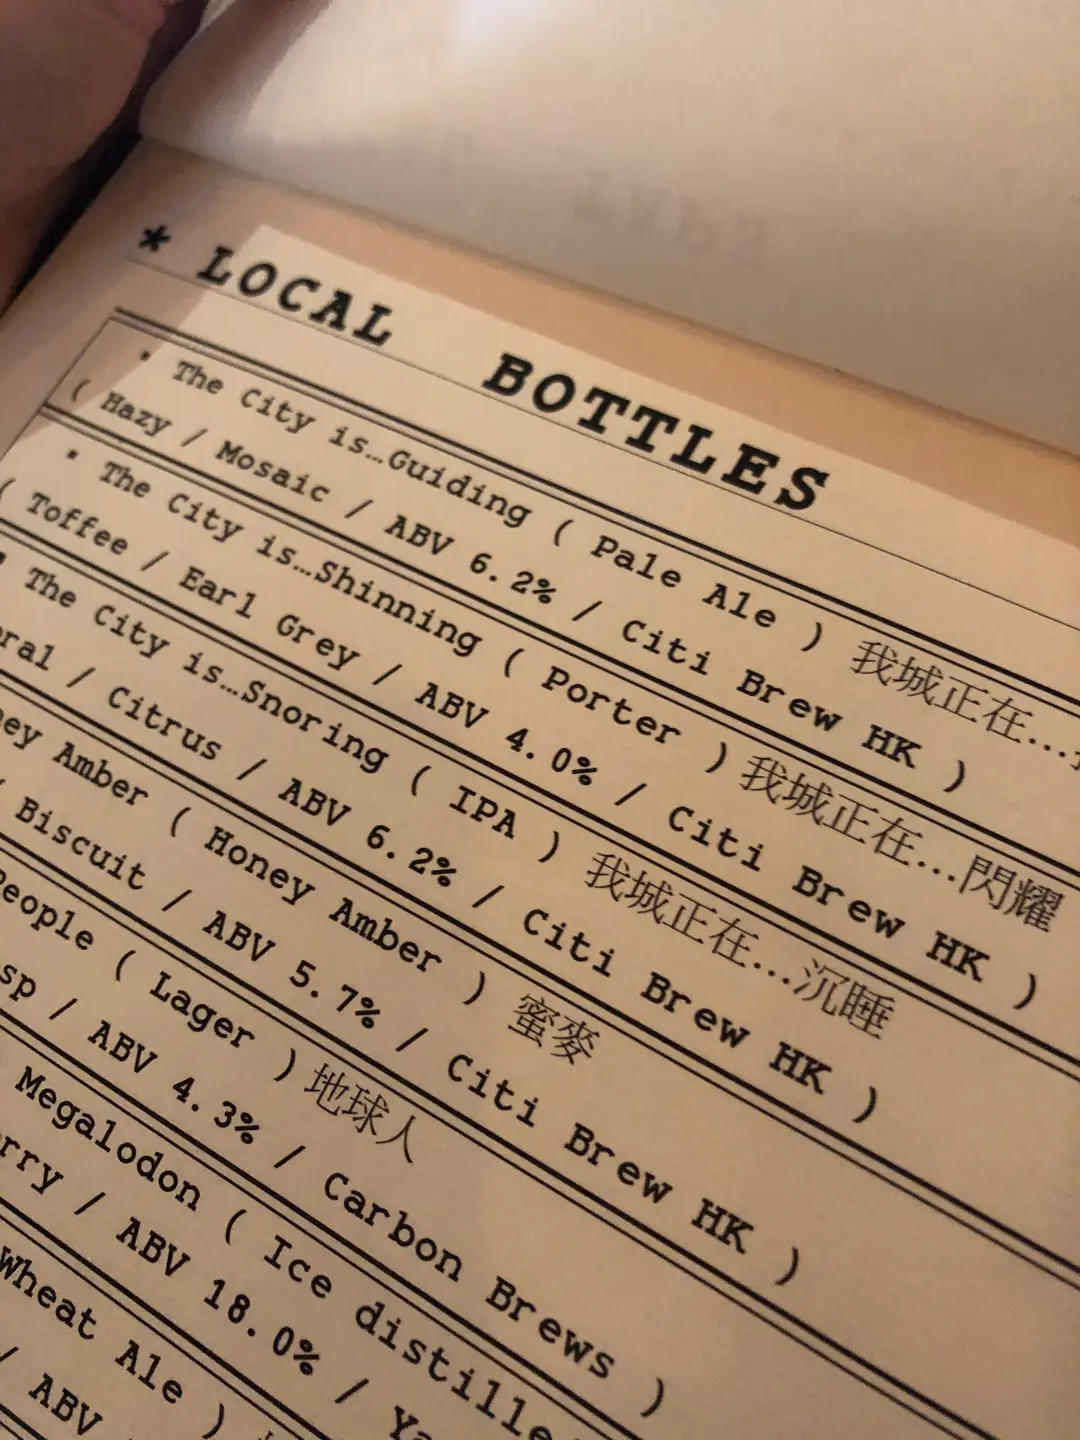 * LOCAL BOTTLES
* The City is…Guiding ( Pale Ale ) 我城正在…
( Hazy / Mosaic / ABV 6.2% / Citi Brew HK )
* The City is…Shinning ( Porter ) 我城正在…閃耀
( Toffee / Earl Grey / ABV 4.0% / Citi Brew HK )
* The City is…Snoring ( IPA ) 我城正在…沉睡
/ Citrus / ABV 6.2% / Citi Brew HK )
Amber ( Honey Amber ) 蜜麥
/ Biscuit / ABV 5.7% / Citi Brew HK )
People ( Lager ) 地球人
/ ABV 4.3% / Carbon Brews )
Megalodon ( Ice
/ ABV 18.0% /
Wheat Ale )
/ ABV